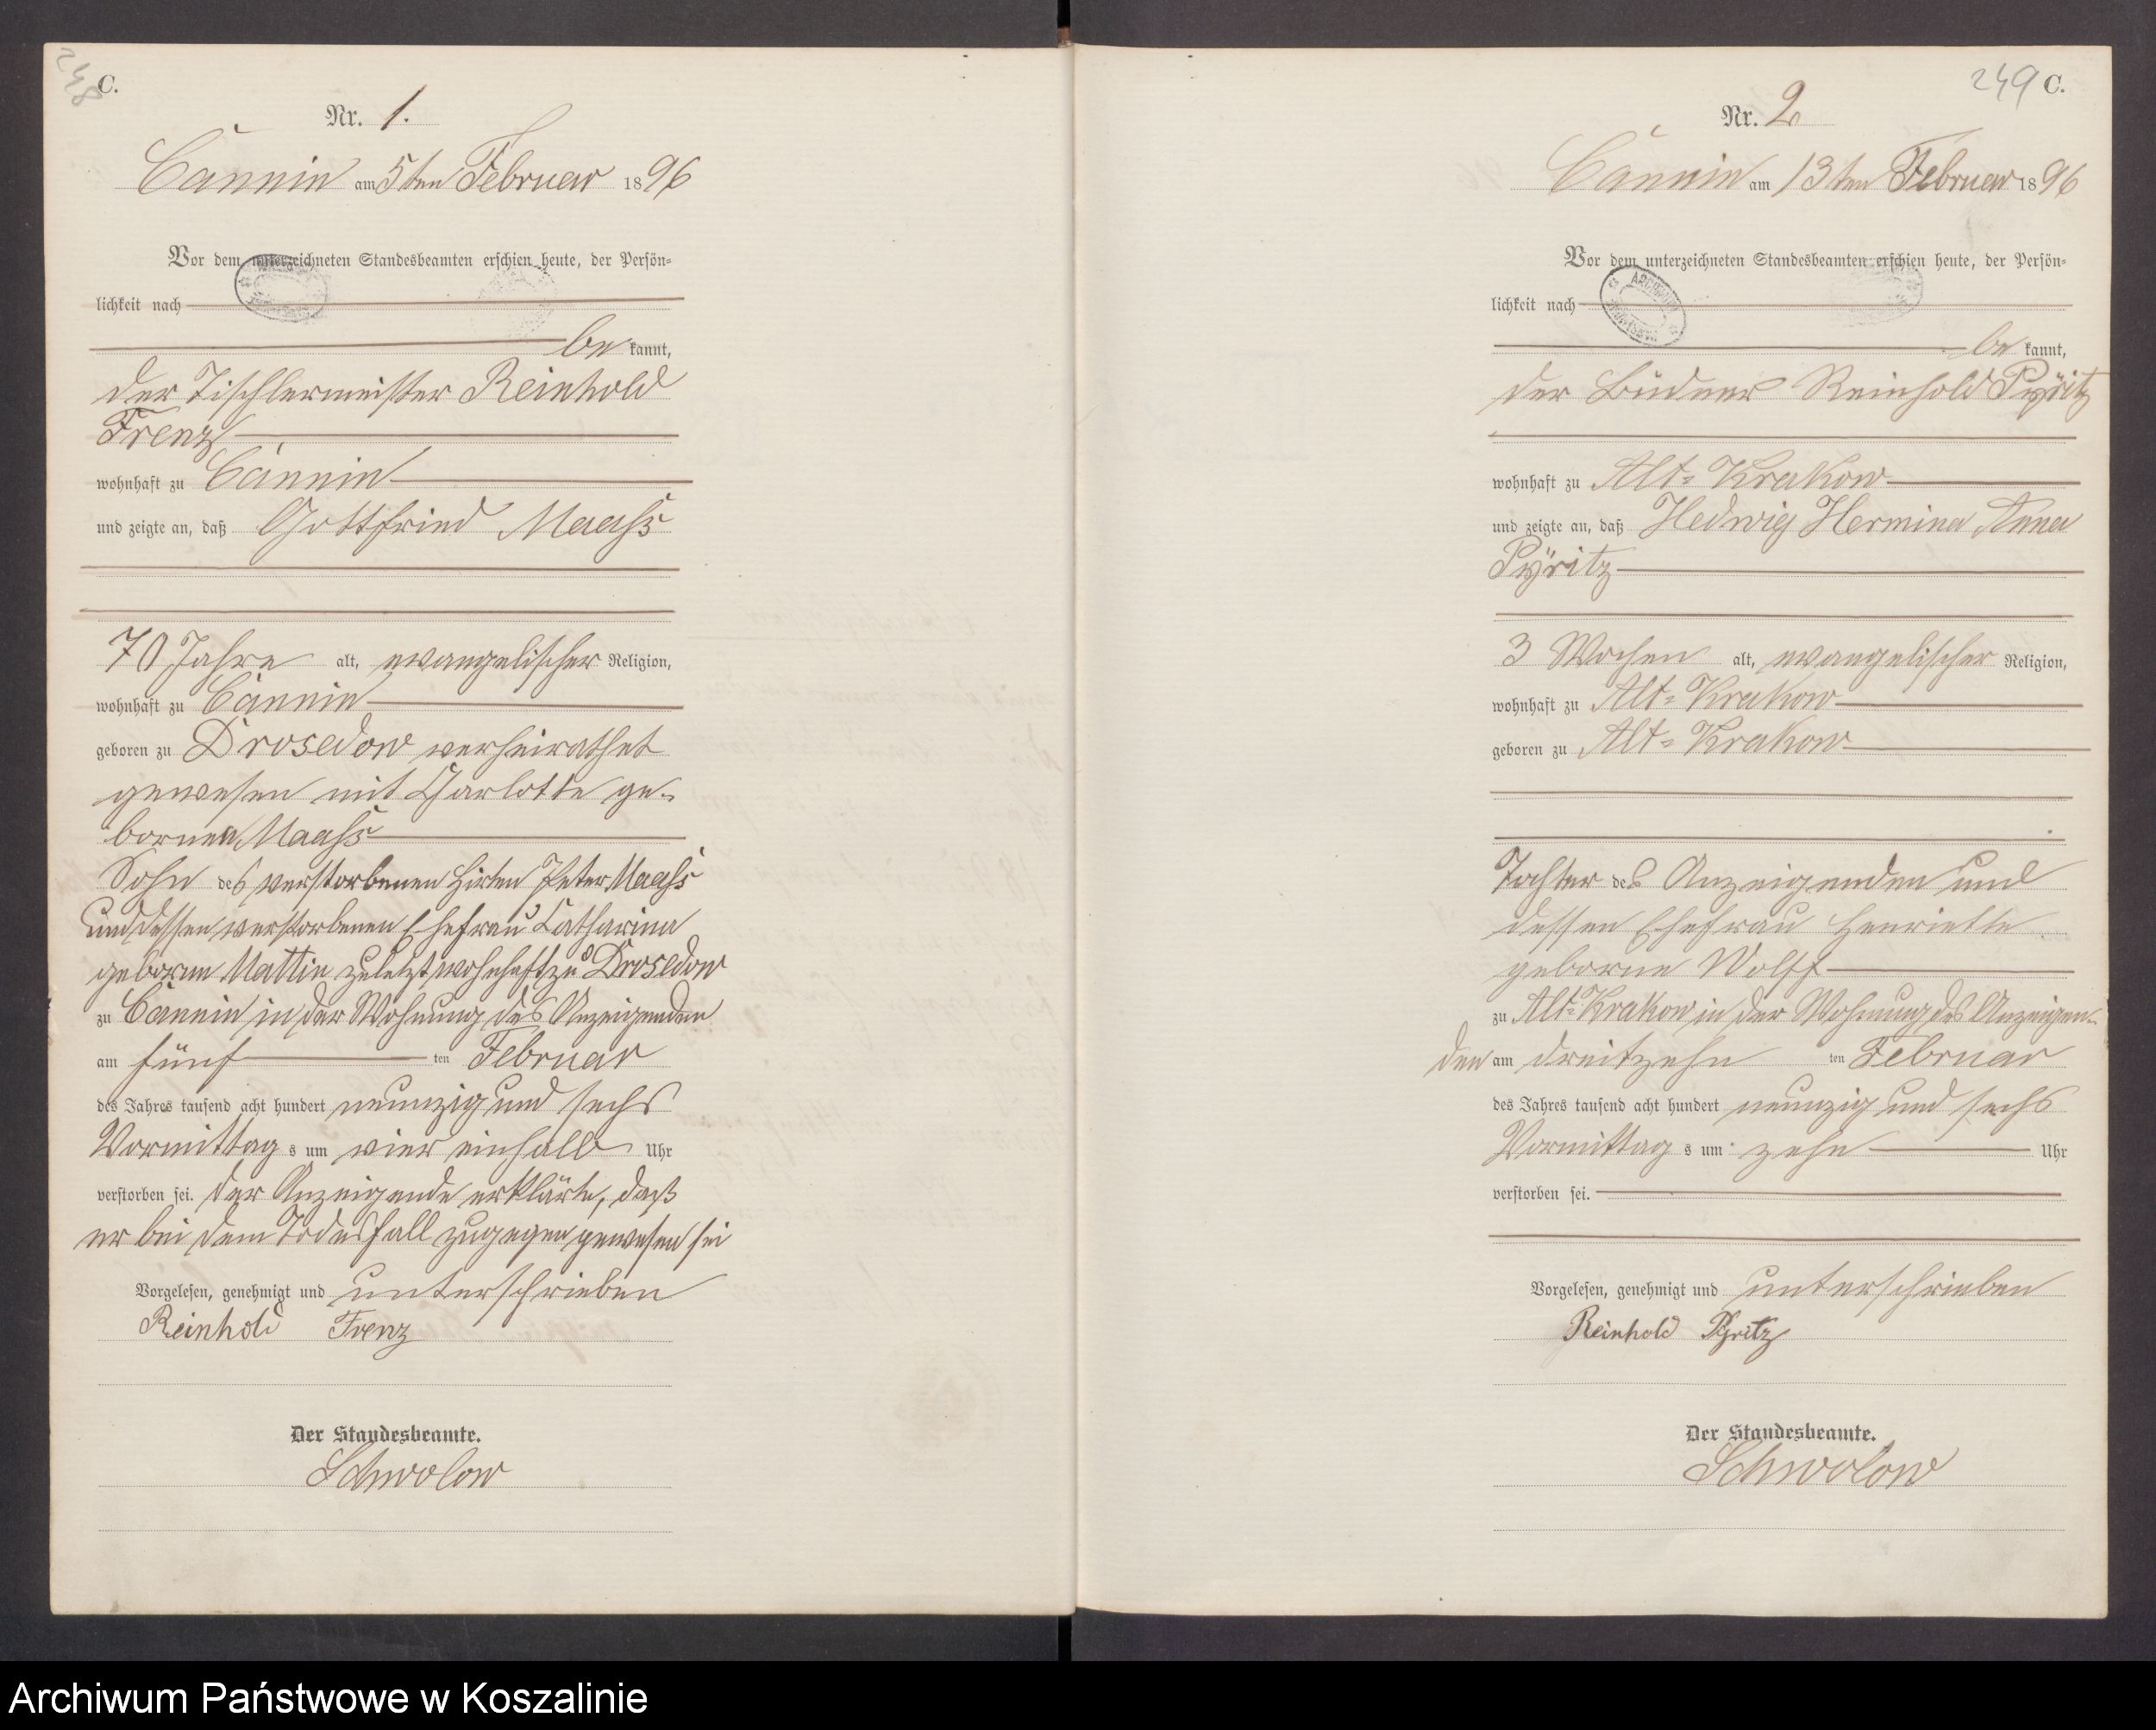 248
C.
Nr. 1.
Cannin am 5ten Februar 1896
Vor dem unterzeichneten Standesbeamten erschien heute, der Persön-
lichkeit nach
bekannt,
der Tischlermeister Reinhold
Frenz
wohnhaft zu Cannin
und zeigte an, daß Gottfried Maaß
70 Jahre alt, evangelischer Religion,
wohnhaft zu Cannin
geboren zu Drosedow verheirathet
gewesen mit Charlotte ge-
bornen Maaß
Sohn des verstorbenen Hirten Peter Maaß
und dessen verstorbenen Ehefrau Catharina
geborne Mattin zuletzt wohnhaft zu Drosedow
zu Cannin in der Wohnung des Anzeigenden
am fünf ten Februar
des Jahres tausend acht hundert neunzig und sechs
Vormittags um vier einhalb Uhr
verstorben sei. Der Anzeigende erklärte, daß
er bei dem Todesfall zugegen gewesen sei
Vorgelesen, genehmigt und unterschrieben
Reinhold Frenz
Der Standesbeamte.
Schwolow
249 C.
Nr. 2
Cannin am 13ten Februar 1896
Vor dem unterzeichneten Standesbeamten erschien heute, der Persön-
lichkeit nach
bekannt,
der Büdner Reinhold Pÿritz
wohnhaft zu Alt-Krakow
und zeigte an, daß Hedwig Hermina Anna
Pÿritz
3 Wochen alt, evangelischer Religion,
wohnhaft zu Alt-Krakow
geboren zu Alt-Krakow
Tochter des Anzeigenden und
dessen Ehefrau Henriette
geborne Wolff
zu Alt-Krakow in der Wohnung des Anzeigen-
den am dreitzehn ten Februar
des Jahres tausend acht hundert neunzig und sechs
Vormittags um zehn Uhr
verstorben sei.
Vorgelesen, genehmigt und unterschrieben
Reinhold Pyritz
Der Standesbeamte.
Schwolow
Archiwum Państwowe w Koszalinie